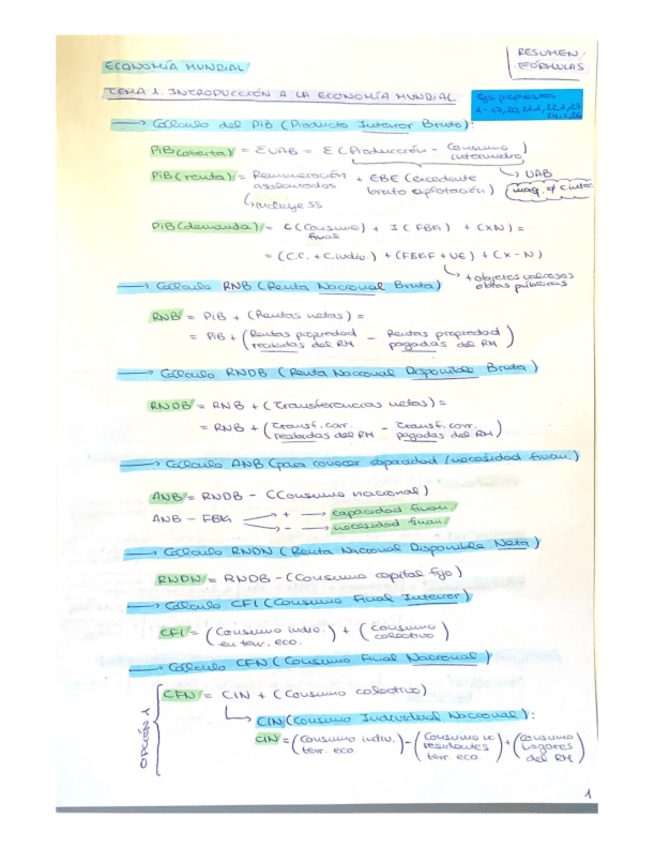 RESUMEN
FÓRMULAS
ECONOMÍA MUNDIAL
TEMA 1. INTRODUCCIÓN A LA ECONOMÍA MUNDIAL
→ Cálculo del PiB (Producto Interior Bruto):
PiB(oferta) = ΣVAB = Σ(Producción - Consumo intermedio)
→ VAB
PiB(renta) = Remuneración asalariados + EBE (excedente bruto explotación)
↳ incluye SS
PiB(demanda) = C(Consumo final) + I (FBK) + (XN) =
= (C.C. + C.indiv.) + (FBKF + VE) + (X - N)
↳ + objetos valiosos
obras públicas
→ Cálculo RNB (Renta Nacional Bruta)
RNB = PiB + (Rentas netas) =
= PiB + (Rentas propiedad recibidas del RM - Rentas propiedad pagadas del RM)
→ Cálculo RNDB (Renta Nacional Disponible Bruta)
RNDB = RNB + (Transferencias netas) =
= RNB + (Transf. corr. recibidas del RM - Transf. corr. pagadas del RM)
→ Cálculo ANB (para conocer capacidad / necesidad finan.)
ANB = RNDB - (Consumo nacional)
ANB - FBK
+ → capacidad finan.
- → necesidad finan.
→ Cálculo RNDN (Renta Nacional Disponible Neta)
RNDN = RNDB - (Consumo capital fijo)
→ Cálculo CFI (Consumo Final Interior)
CFI = (Consumo indiv. en terr. eco.) + (Consumo colectivo)
→ Cálculo CFN (Consumo Final Nacional)
OPCIÓN 1
CFN = CIN + (Consumo colectivo)
↳ CIN (Consumo Individual Nacional):
CIN = (Consumo indiv. terr. eco.) - (Consumo residentes terr. eco.) + (Consumo hogares del RM)
1